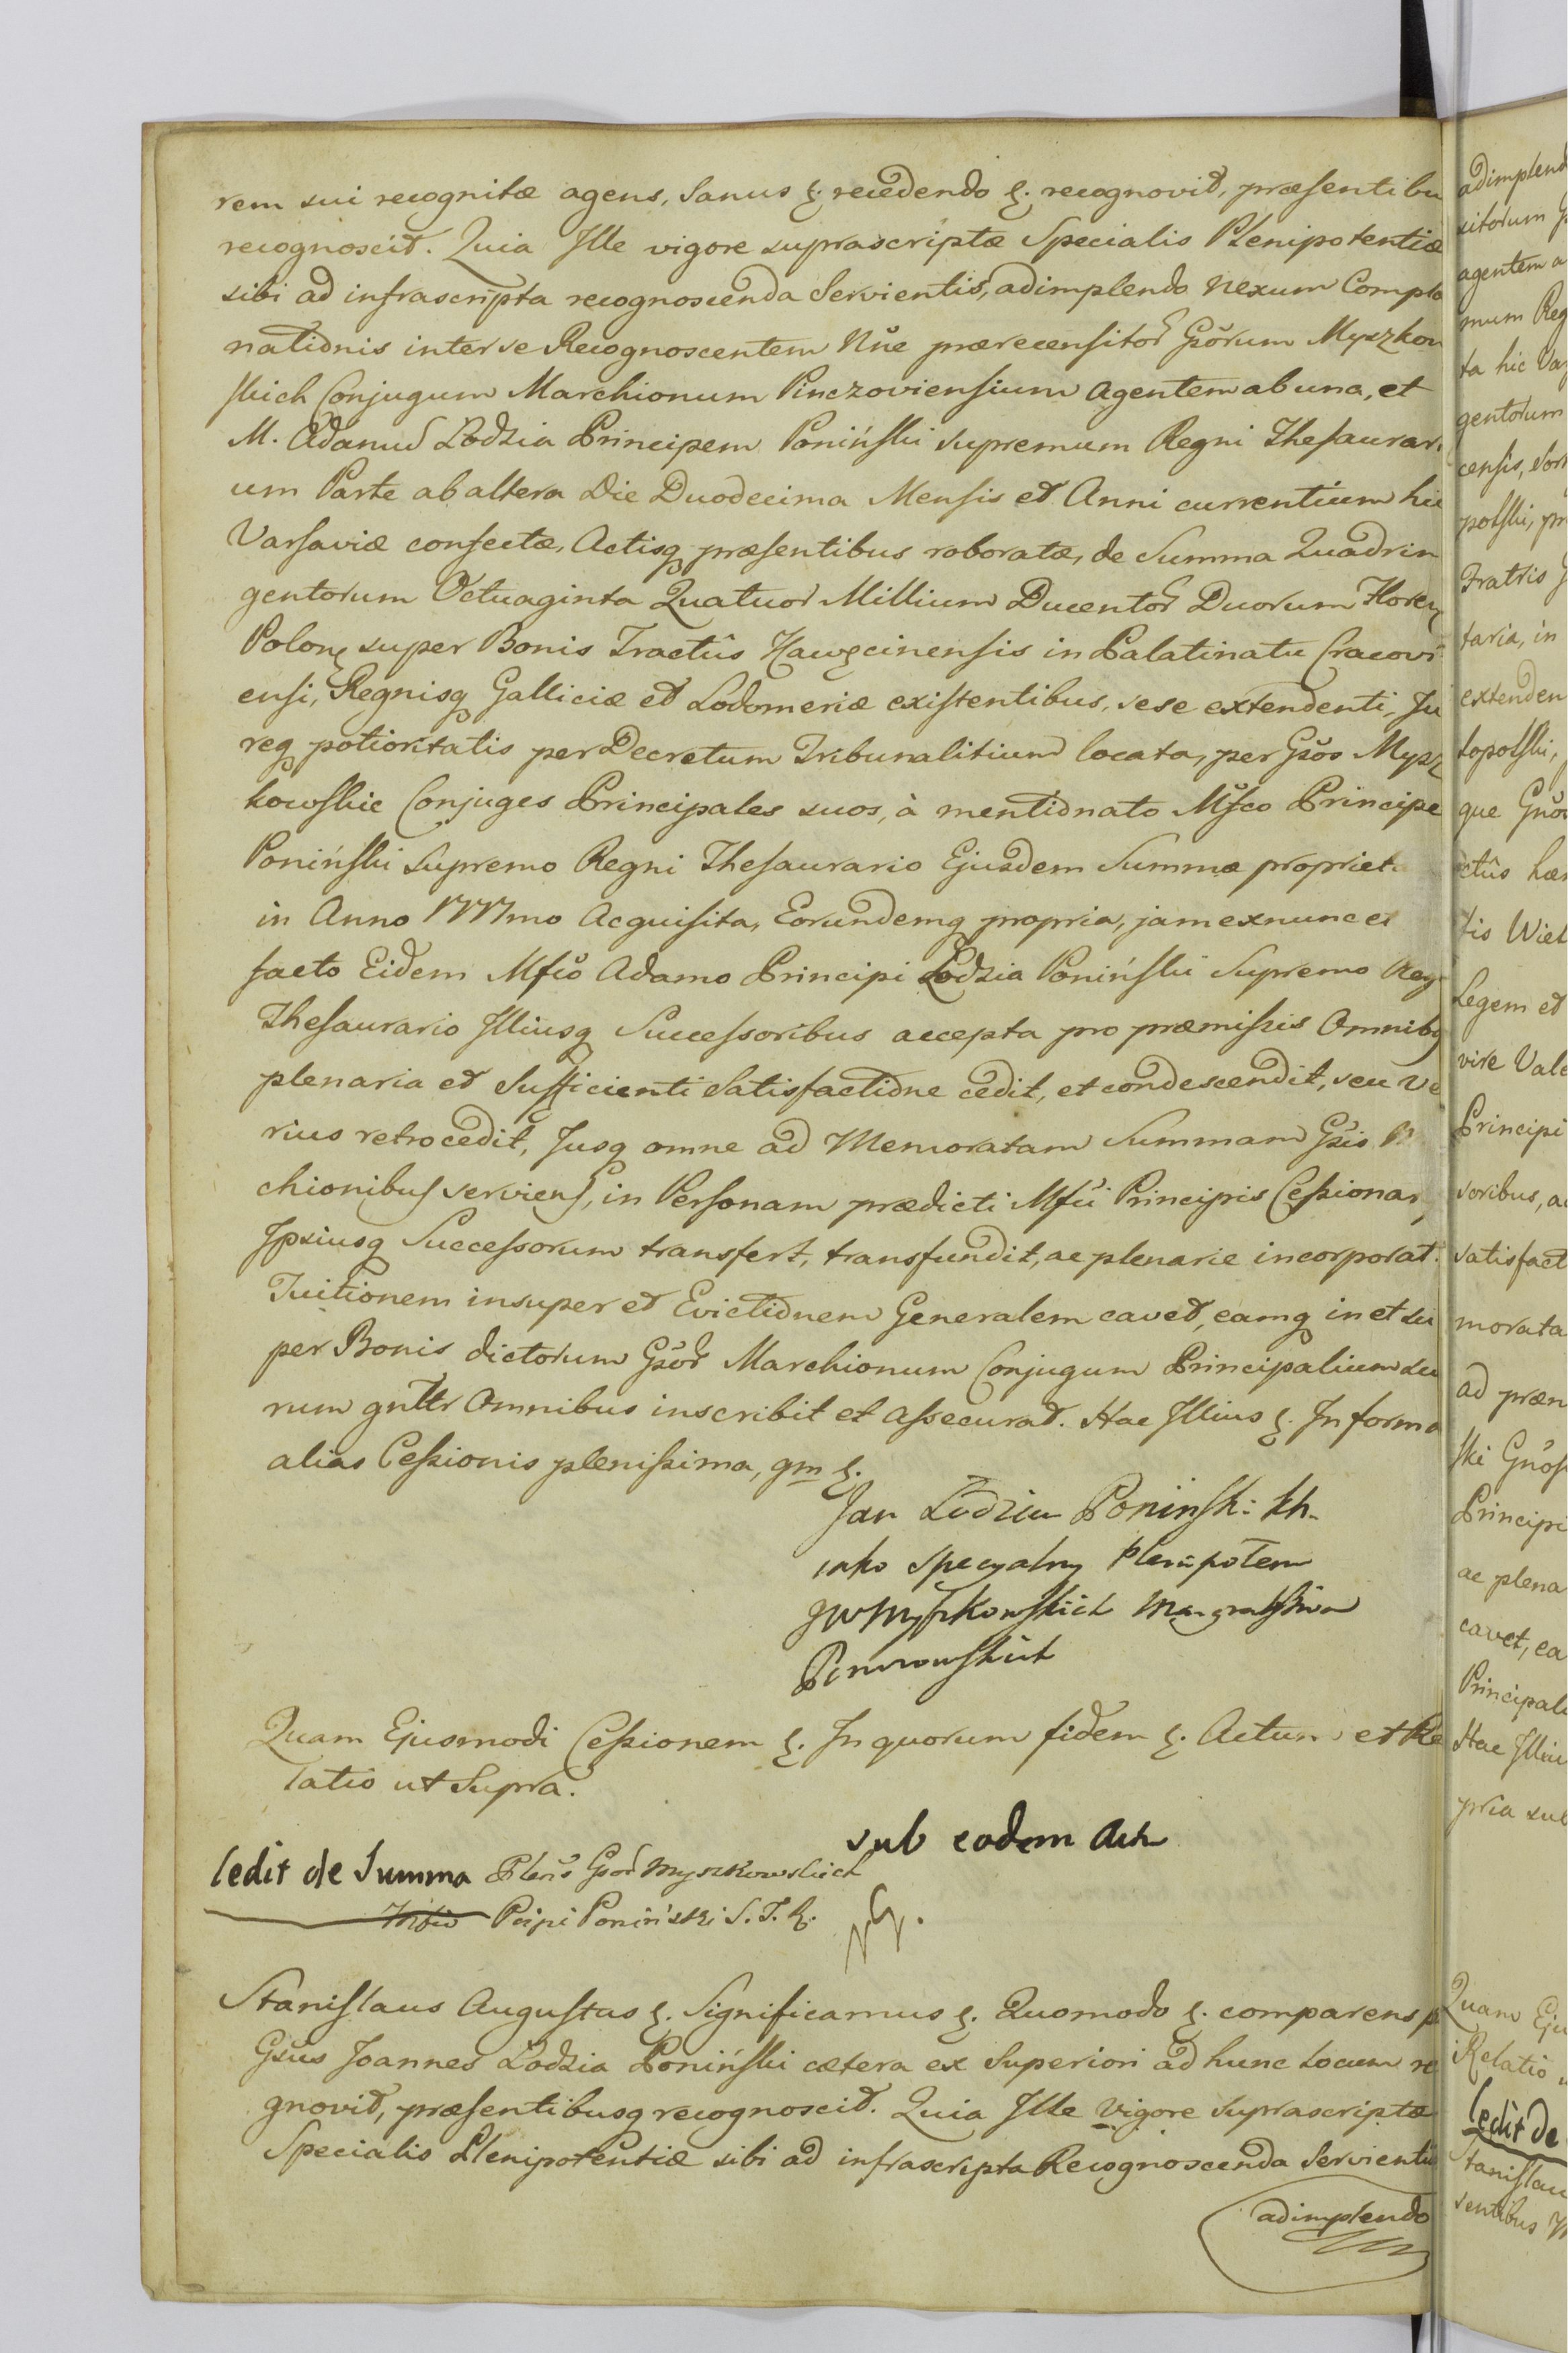 rem sui recognitæ agens, Sanus &. recedendo &. recognovit, præsentibu
recognoscit. Quia Ille vigore suprascriptæ Specialis Plenipotentiæ
sibi ad infrascripta recognoscenda Servientis, adimplendo Nexum Compla
nationis inter se Recognoscentem Nñe prærecensitor Gsörum Myszkow
skich Conjugum Marchionum Pinczoviensium Agentem ab una, et
M. Adamum Lodzia Principem Poniński Supremum Regni Thesaurari
um Parte ab altera Die Duodecima Mensis et Anni currentium hic
Varsaviæ confectæ, Actisq præsentibus roboratæ, de Summa Quadrin
gentorum Octuaginta Quatuor Millium Ducentor Duorum Floren
Polon super Bonis Tractûs Xiawęcinensis in Palatinatu Cracovi
ensi, Regnisq Galliciæ et Lodomeriæ existentibus, sese extendenti, Ju
req potioritatis per Decretum Tribunalitium locata, per Gsos Mysz
kowskie Conjuges Principales suos, à mentionato Msco Principe
Poniński Supremo Regni Thesaurario Ejusdem Summæ propriet
in Anno 1777mo Acquisita, Eorundemq propria, jam ex nunc et
facto Eidem Msco Adamo Principi Lodzia Poniński Supremo Reg
Thesaurario Illiusq Successoribus accepta pro præmissis Omnibq
plenaria et Sufficienti Satisfactione cedit, et condescendit, seu Ve
rius retrocedit, Jusq omne ad Memoratam Summam Gsis M
chionibus serviens, in Personam prædicti Msci Principis Cessionar
Ipsiusq Successorum transfert, transfundit, ac plenarie incorporat.
Tuitionem insuper et Evictionem Generalem cavet, eamq in et su
per Bonis dictorum Gsor Marchionum Conjugum Principalium suo
rum gnltr Omnibus inscribit et assecurat. Hac Illius &. In forma
alias Cessionis plenissima, gm &.
Jan Lodzia Poninski kh.
iako specyalny Plenipotem
JW Myszkowskich Margrabiow
Pinczowskich
Quam Ejusmodi Cessionem &. In quorum fidem &. Actum et Re
latio ut Supra.
sub eodem Actu
Cedit de Summa Plens Gsor Myszkowskich
Msco Pcipi Poniński S. T. R.
Stanislaus Augustus &. Significamus &. Quomodo &. comparens p
Gsus Joannes Lodzia Poniński cætera ex Superiori ad hunc locum re
gnovit, præsentibusq recognoscit. Quia Ille vigore suprascriptæ
Specialis Plenipotentiæ sibi ad infrascripta Recognoscenda Servientis
adimplendo
adimplend
sitorum
agentem a
mum Reg
ta hic Var
gentorum
censis, sort
polski, pr
Fratris
taria, in
extenden
topolski,
que Gnor
ctûs hær
tis Wiel
Legem et
vire Vale
Principi
soribus, ac
satisfact
morata
ad præn
ski Gnos
Principi
ac plena
cavet, ea
Principali
Hac Illiu
pria sub
Quam Eju
Relatio
Cedit de
Stanislau
sentibus